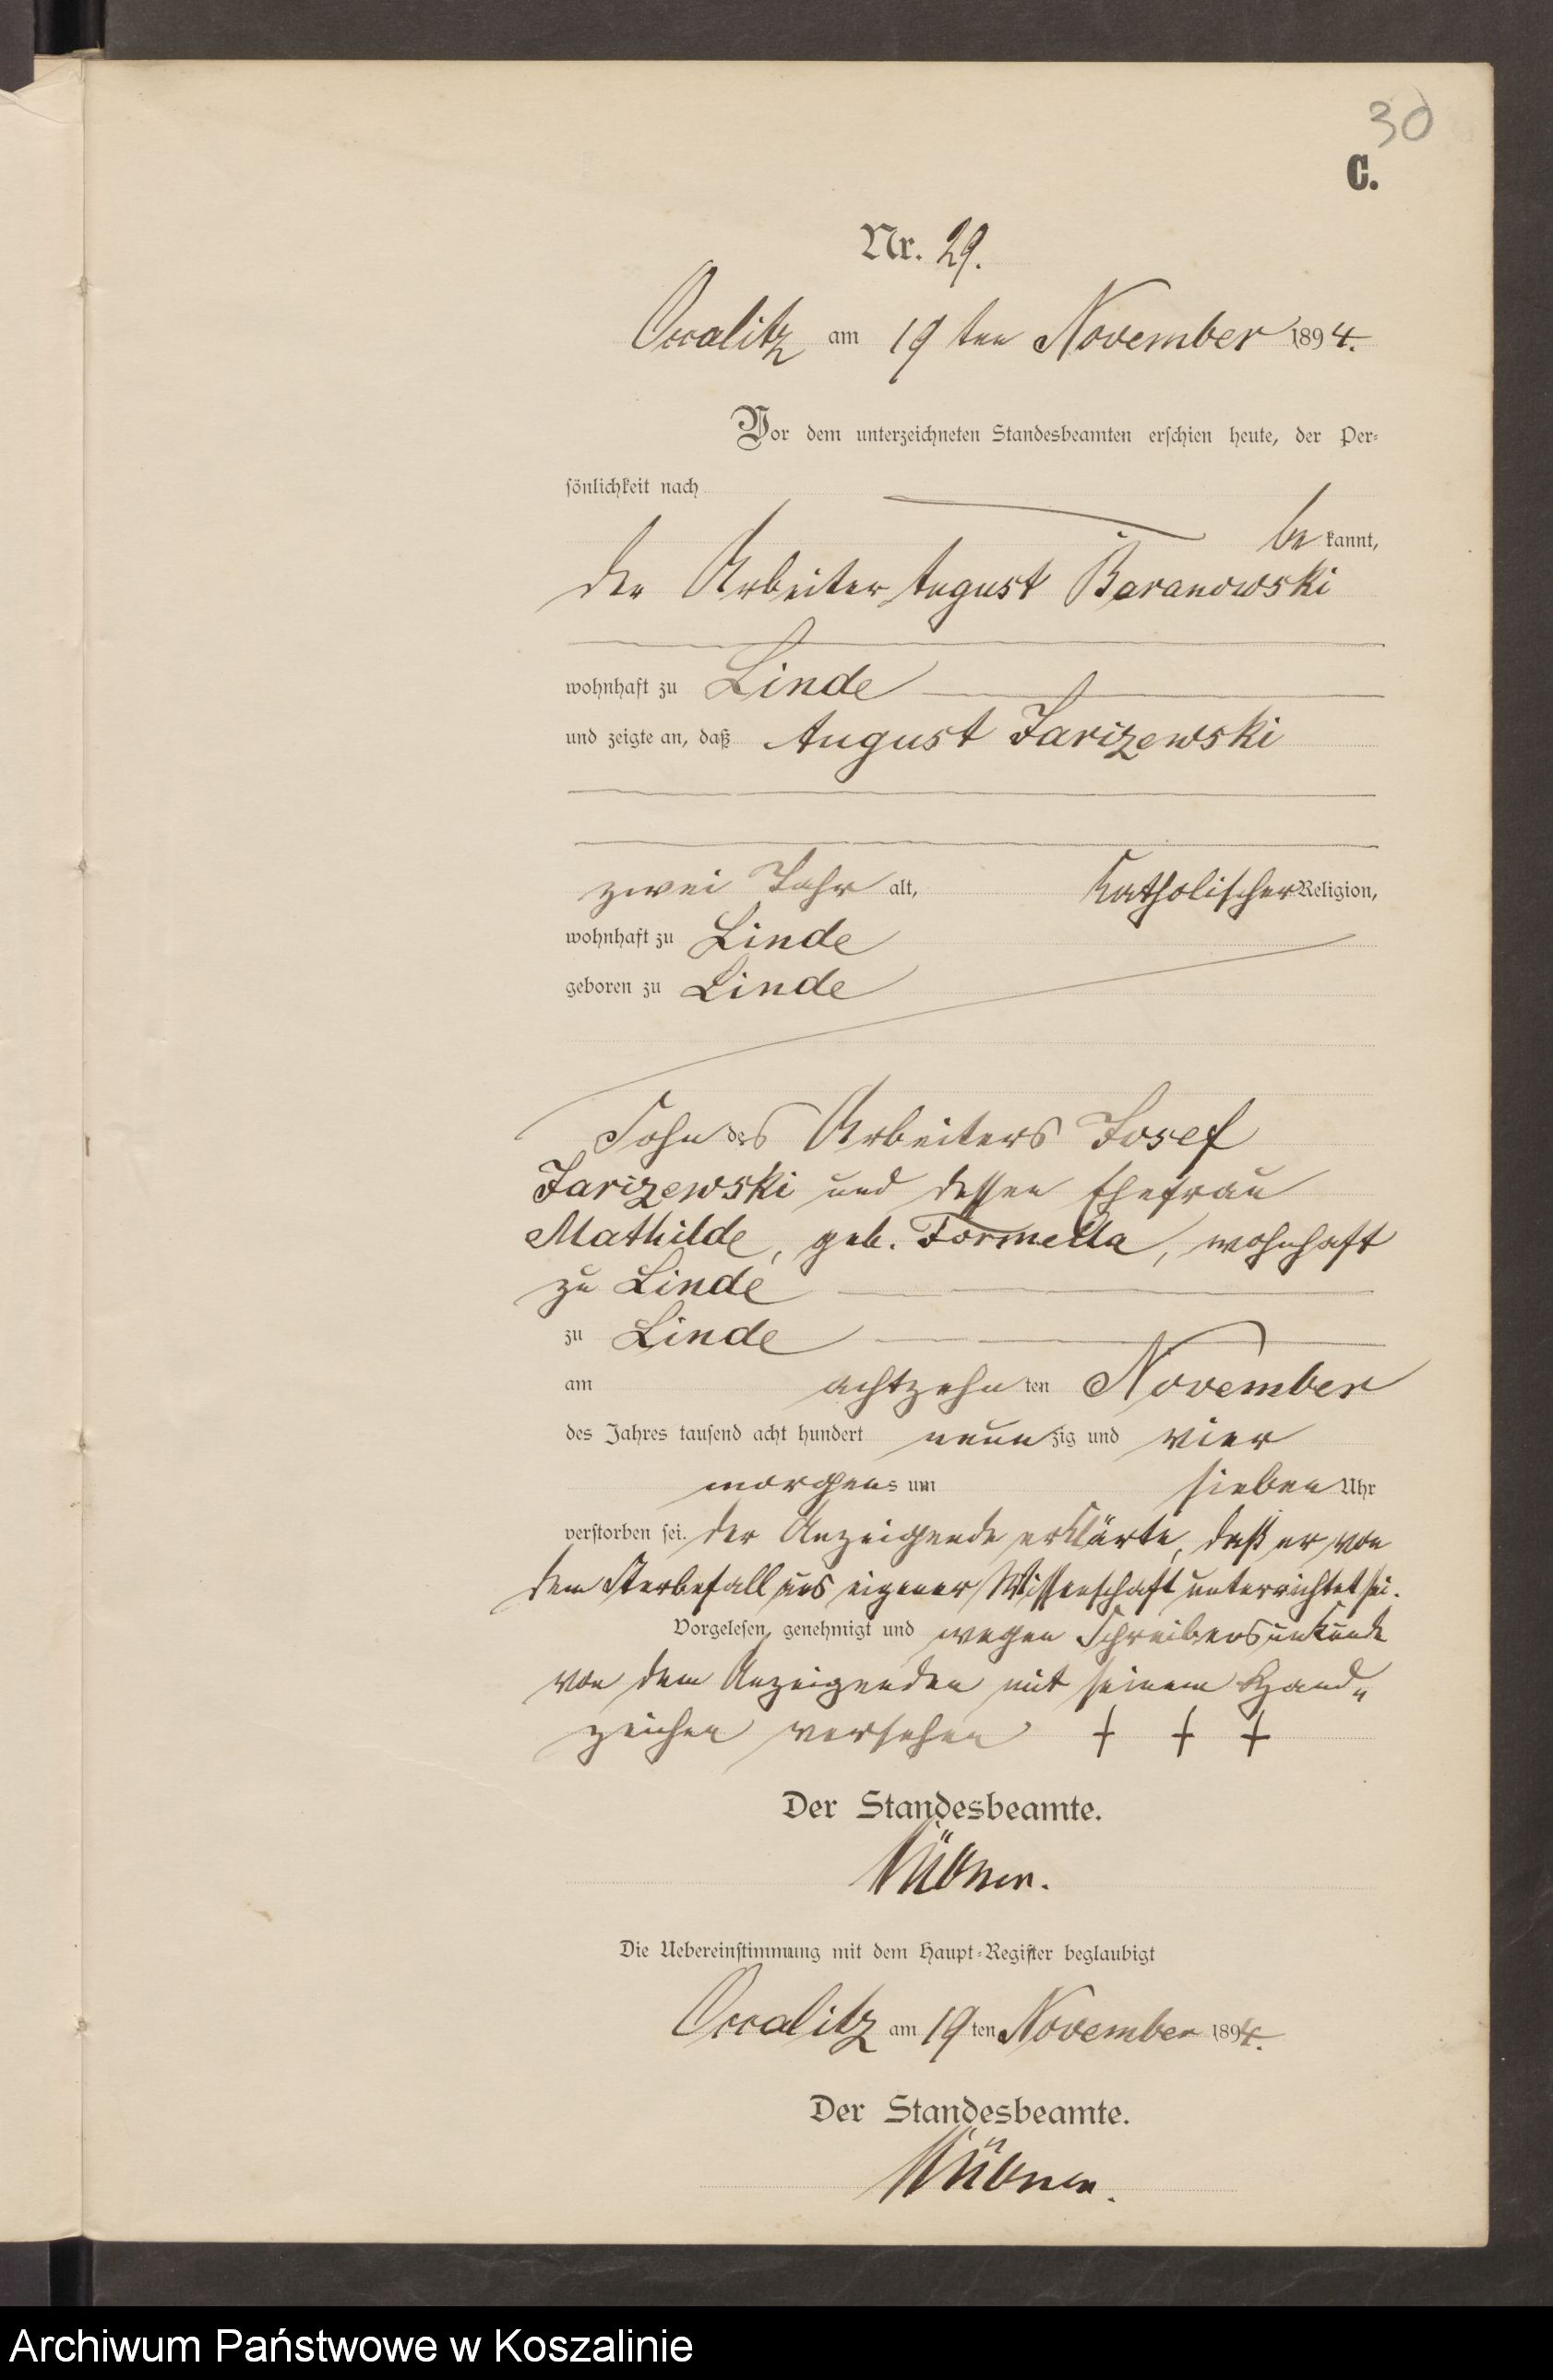 30
C.
Nr. 29.
Occalitz am 19 ten November 1894.
Vor dem unterzeichneten Standesbeamten erschien heute, der Per-
sönlichkeit nach
be kannt,
der Arbeiter August Baranowski
wohnhaft zu Linde
und zeigte an, daß August Jarizewski
zwei Jahr alt, katholischer Religion,
wohnhaft zu Linde
geboren zu Linde
Sohn des Arbeiters Josef
Jarizewski und dessen Ehefrau
Mathilde, geb. Formella, wohnhaft
zu Linde
zu Linde
am achtzehn ten November
des Jahres tausend acht hundert neun zig und vier
morgens um sieben Uhr
verstorben sei. Der Anzeigende erklärte, daß er von
dem Sterbefall aus eigener Wissenschaft unterrichtet sei.
Vorgelesen, genehmigt und wegen Schreibensunkunde
von dem Anzeigenden mit seinem Hand„
zeichen versehen + + +
Der Standesbeamte.
Die Uebereinstimmung mit dem Haupt-Register beglaubigt
Occalitz am 19 ten November 1894.
Der Standesbeamte.
Archiwum Państwowe w Koszalinie